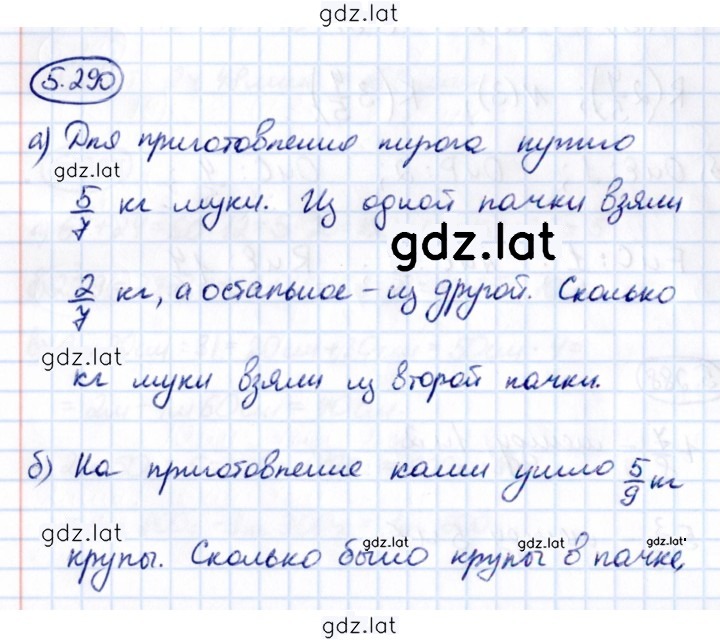 gdz.lat
5.290
а) Для приготовления пирога нужно
gdz.lat
5/7 кг муки. Из одной пачки взяли
gdz.lat
2/7 кг, а остальное – из другой. Сколько
gdz.lat
кг муки взяли из второй пачки.
б) На приготовление каши ушло 5/9 кг
gdz.lat
gdz.lat gdz.lat
крупы. Сколько было крупы в пачке,
gdz.lat